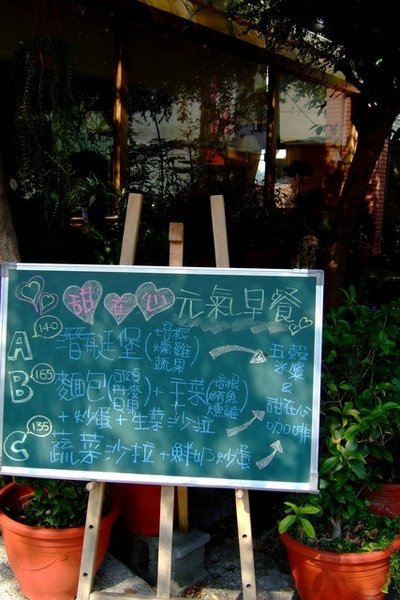 甜在心 元氣早餐
A 140 潛艇堡(培根 燻雞 蔬果) 五穀
B 165 麵包 + 手菜(培根 鮪魚 燻雞) 甜在心
+ 炒蛋 + 生菜沙拉 咖啡
C 135 蔬菜沙拉 + 鮮奶炒蛋